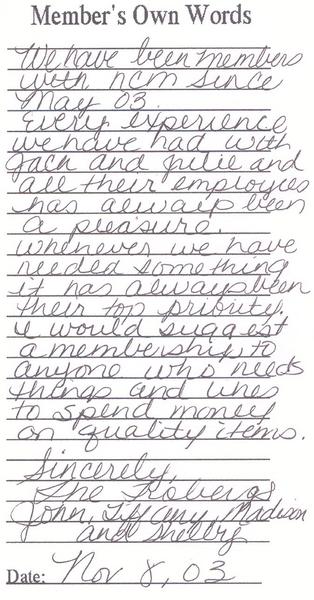 Member's Own Words
We have been members
with ncm since
May 03.
Every experience
we have had with
Jack and Julie and
all their employees
has always been
a pleasure.
Whenever we have
needed something
it has always been
their top priority.
I would suggest
a membership to
anyone who needs
things and likes
to spend money
on quality items.
Sincerely,
The
John, Tiffany, Madison
and Shelby
Date: Nov 8, 03